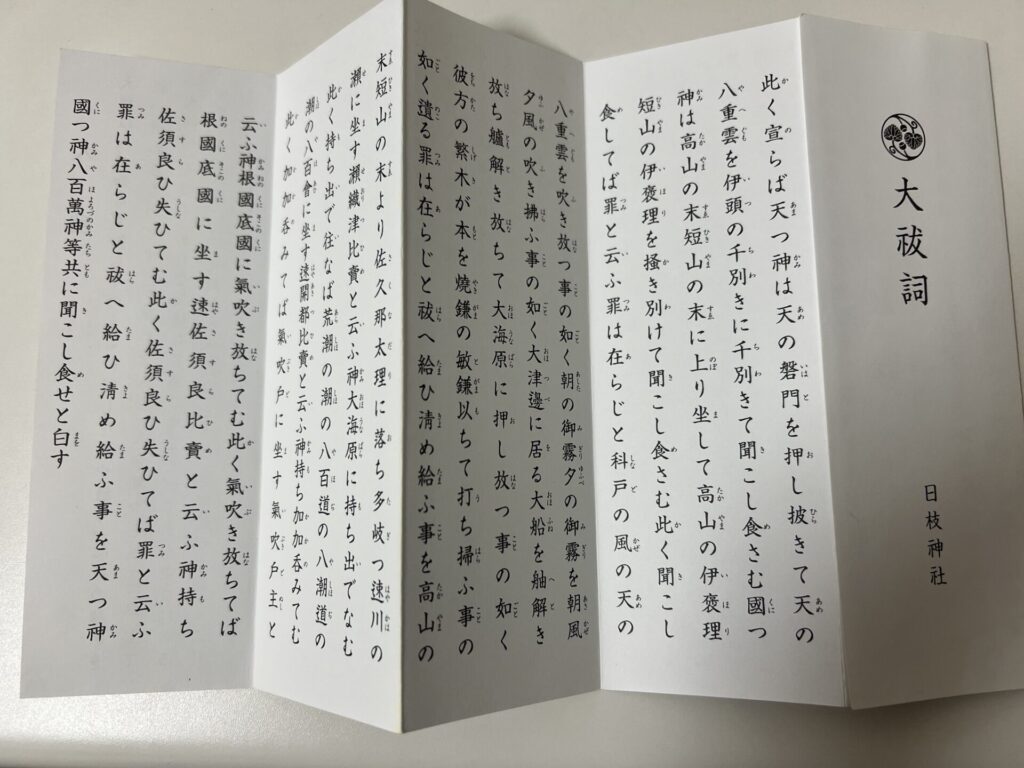 大祓詞
日枝神社
此く宣らば天つ神は天の磐門を押し披きて天の
八重雲を伊頭の千別きに千別きて聞こし食さむ國つ
神は高山の末短山の末に上り坐して高山の伊褒理
短山の伊褒理を掻き別けて聞こし食さむ此く聞こし
食してば罪と云ふ罪は在らじと科戸の風の天の
八重雲を吹き放つ事の如く朝の御霧夕の御霧を朝風
夕風の吹き拂ふ事の如く大津邊に居る大船を舳解き
放ち艫解き放ちて大海原に押し放つ事の如く
彼方の繁木が本を燒鎌の敏鎌以ちて打ち掃ふ事の
如く遺る罪は在らじと祓へ給ひ淸め給ふ事を高山の
末短山の末より佐久那太理に落ち多岐つ速川の
瀨に坐す瀨織津比賣と云ふ神大海原に持ち出でなむ
此く持ち出で往なば荒潮の潮の八百道の八潮道の
潮の八百會に坐す速開都比賣と云ふ神持ち加加呑みてむ
此く加加呑みてば氣吹戸に坐す氣吹戸主と
云ふ神根國底國に氣吹き放ちてむ此く氣吹き放ちてば
根國底國に坐す速佐須良比賣と云ふ神持ち
佐須良ひ失ひてむ此く佐須良ひ失ひてば罪と云ふ
罪は在らじと祓へ給ひ淸め給ふ事を天つ神
國つ神八百萬神等共に聞こし食せと白す